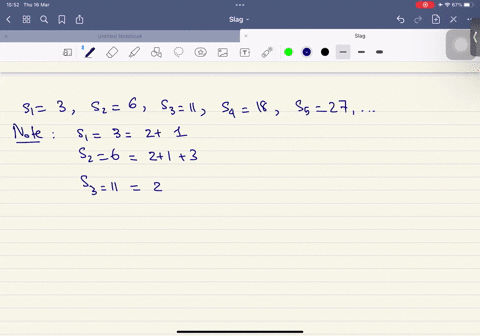 15:52 Thu 16 Mar
67%
Slag
Untitled Notebook
Slag
S₁ = 3, S₂ = 6, S₃ = 11, S₄ = 18, S₅ = 27, ...
Note: S₁ = 3 = 2 + 1
S₂ = 6 = 2 + 1 + 3
S₃ = 11 = 2